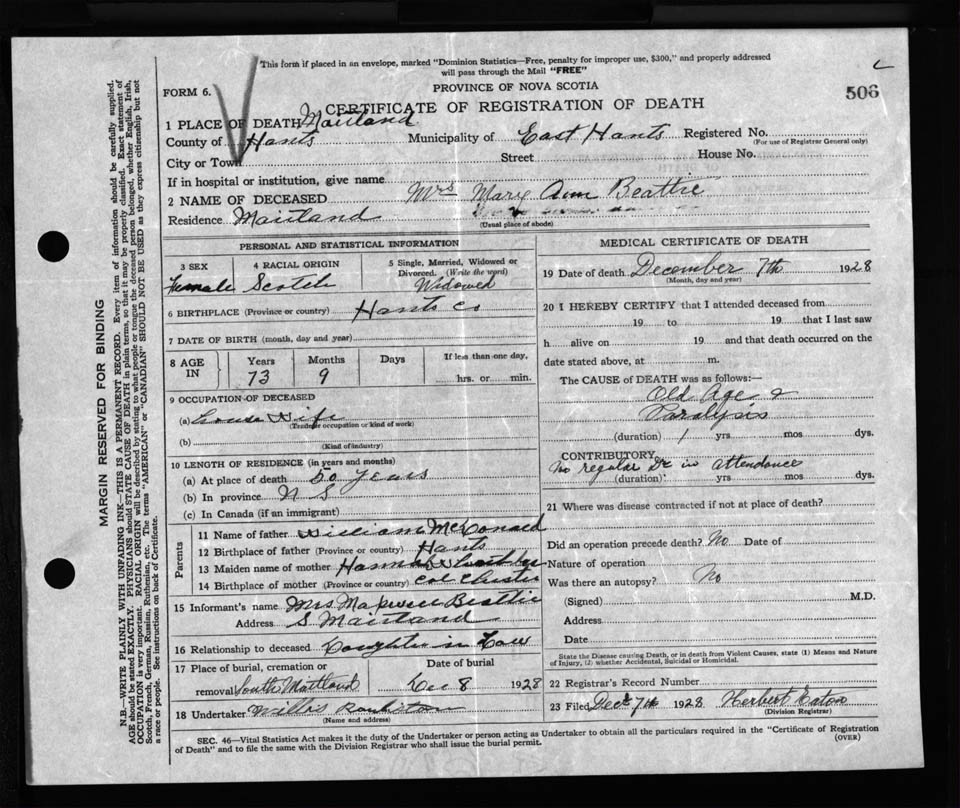 This form if placed in an envelope, marked "Dominion Statistics—Free, penalty for improper use, $300," and properly addressed
will pass through the Mail "FREE"
FORM 6.
PROVINCE OF NOVA SCOTIA
506
CERTIFICATE OF REGISTRATION OF DEATH
1 PLACE OF DEATH Maitland
County of Hants Municipality of East Hants Registered No.
(For use of Registrar General only)
City or Town Street House No.
If in hospital or institution, give name
2 NAME OF DECEASED Mrs Mary Ann Beattie
Residence Maitland
(Usual place of abode)
PERSONAL AND STATISTICAL INFORMATION
3 SEX 4 RACIAL ORIGIN 5 Single, Married, Widowed or
Divorced. (Write the word)
Female Scotch Widowed
6 BIRTHPLACE (Province or country) Hants Co
7 DATE OF BIRTH (month, day and year)
8 AGE IN Years Months Days If less than one day,
73 9 hrs. or min.
9 OCCUPATION OF DECEASED
(a) House Wife
(Trade, occupation or kind of work)
(b)
(Kind of industry)
10 LENGTH OF RESIDENCE (in years and months)
(a) At place of death 50 years
(b) In province N S
(c) In Canada (if an immigrant)
Parents
11 Name of father William McDonald
12 Birthplace of father (Province or country) Hants
13 Maiden name of mother Hannah
14 Birthplace of mother (Province or country) Col Chester
15 Informant's name Mrs. Maxwell Beattie
Address S Maitland
16 Relationship to deceased Daughter in Law
17 Place of burial, cremation or Date of burial
removal South Maitland Dec 8 1928
18 Undertaker Willis
(Name and address)
MEDICAL CERTIFICATE OF DEATH
19 Date of death December 7th 1928
(Month, day and year)
20 I HEREBY CERTIFY that I attended deceased from
19 to 19 that I last saw
h alive on 19 and that death occurred on the
date stated above, at m.
The CAUSE OF DEATH was as follows:—
Old Age &
Paralysis
(duration) 1 yrs mos dys.
CONTRIBUTORY
No regular Dr in attendance
(duration) yrs mos dys.
21 Where was disease contracted if not at place of death?
Did an operation precede death? No Date of
Nature of operation
Was there an autopsy? No
(Signed) M.D.
Address
Date
State the Disease causing Death, or in death from Violent Causes, state (1) Means and Nature
of Injury, (2) whether Accidental, Suicidal or Homicidal.
22 Registrar's Record Number
23 Filed Dec 7th 1928 Herbert Eaton
(Division Registrar)
SEC. 46—Vital Statistics Act makes it the duty of the Undertaker or person acting as Undertaker to obtain all the particulars required in the "Certificate of Registration
of Death" and to file the same with the Division Registrar who shall issue the burial permit.
(OVER)
MARGIN RESERVED FOR BINDING
N.B.—WRITE PLAINLY WITH UNFADING INK—THIS IS A PERMANENT RECORD. Every item of information should be carefully supplied.
AGE should be stated EXACTLY. PHYSICIANS should STATE CAUSE OF DEATH in plain terms, so that it may be properly classified. Exact statement of
OCCUPATION is very important. RACIAL ORIGIN will be described by stating to what people or tongue the deceased person belonged, whether English, Irish,
Scotch, French, German, Russian, Ruthenian, etc. The terms "AMERICAN" or "CANADIAN" SHOULD NOT BE USED as they express citizenship but not
a race or people. See instructions on back of Certificate.